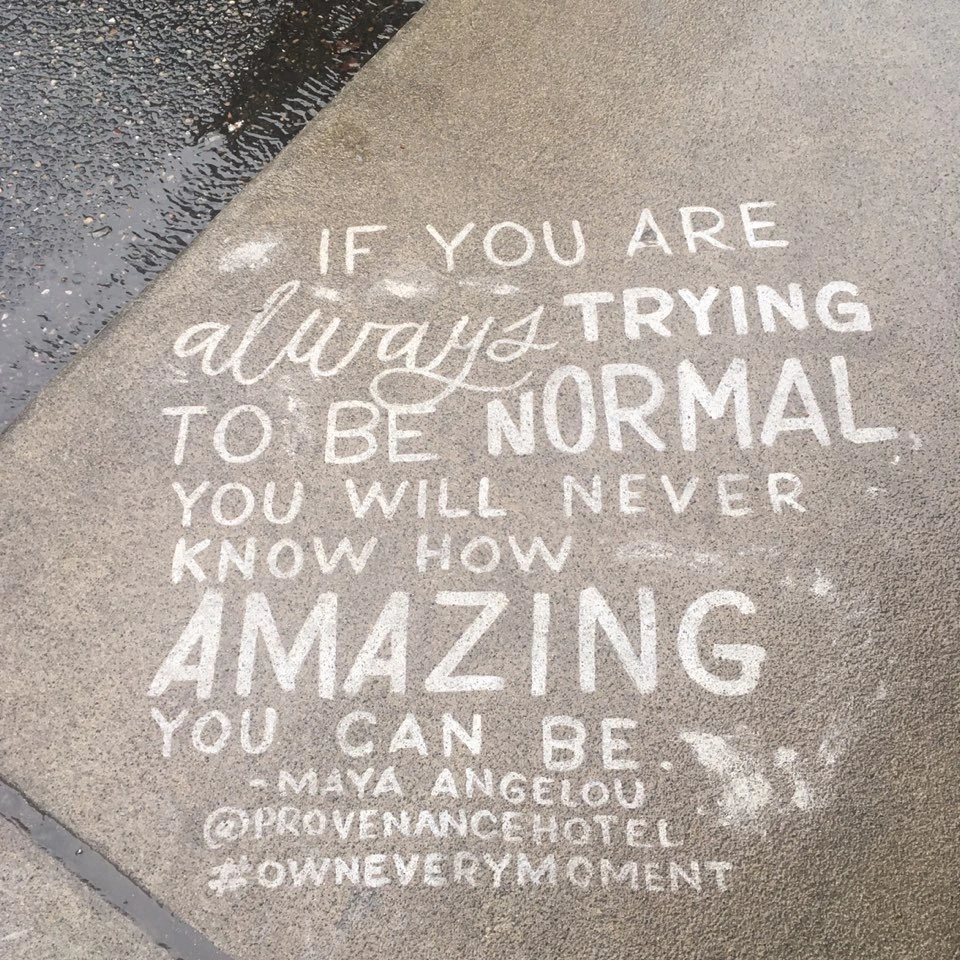 IF YOU ARE
always TRYING
TO BE NORMAL,
YOU WILL NEVER
KNOW HOW
AMAZING
YOU CAN BE.
-MAYA ANGELOU
@PROVENANCEHOTEL
#OWNEVERYMOMENT